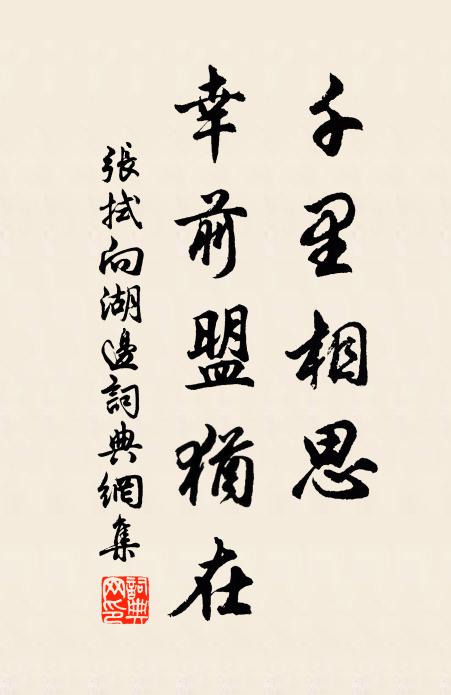 千里相思
幸前盟猶在
張拭向湖邊詞典網集
詞典網印